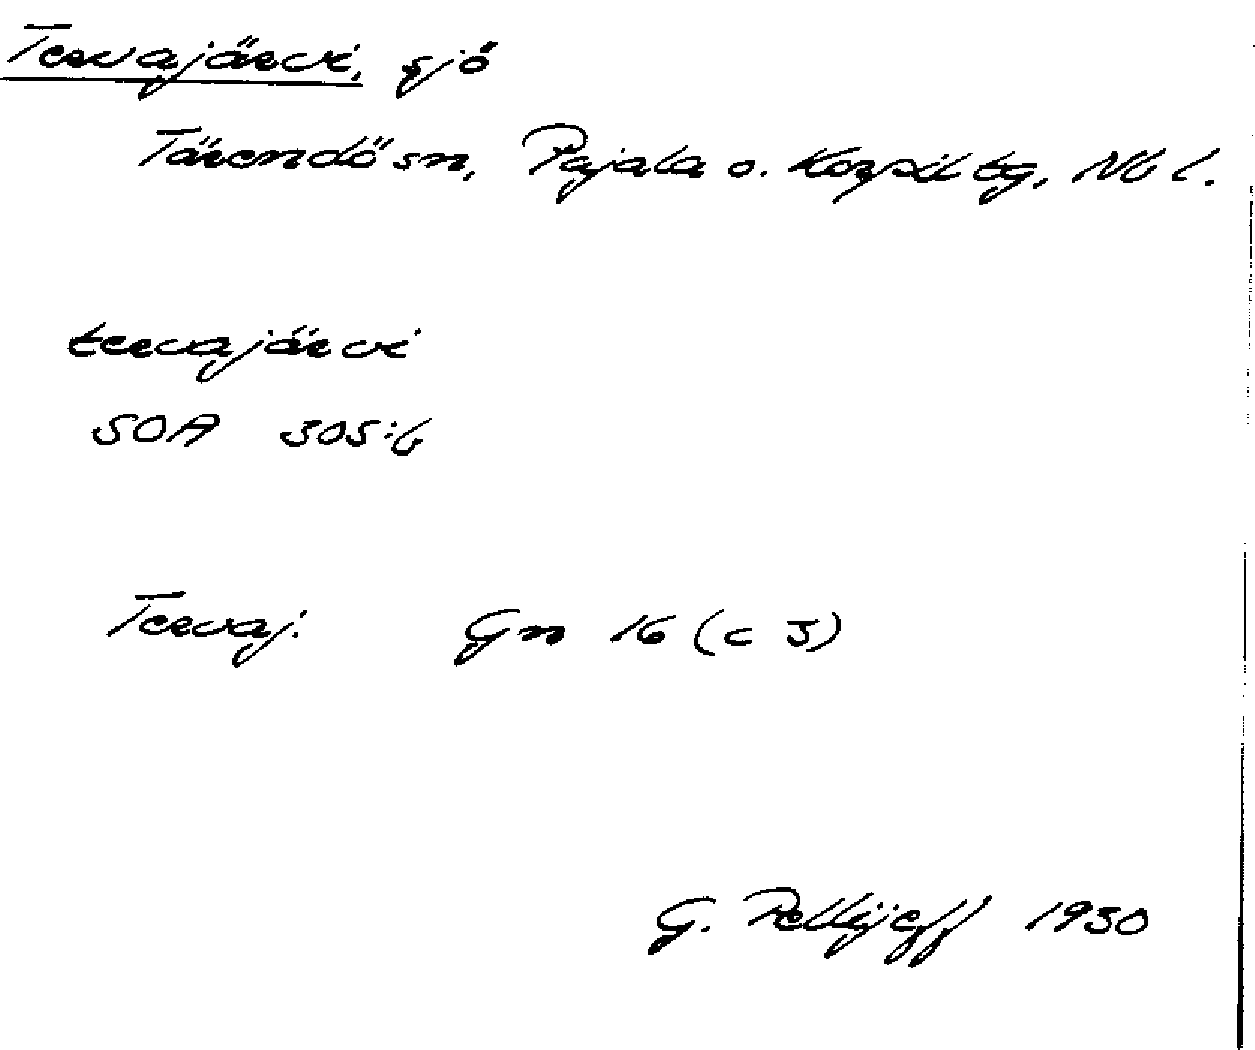 Tervajärvi, sjö
Tärendö sn, Pajala o. Korpil. tg, Nb l.
tervajärvi
SOA 305:6
Tervaj. Gn 16 (c 3)
G. Pellijeff 1950